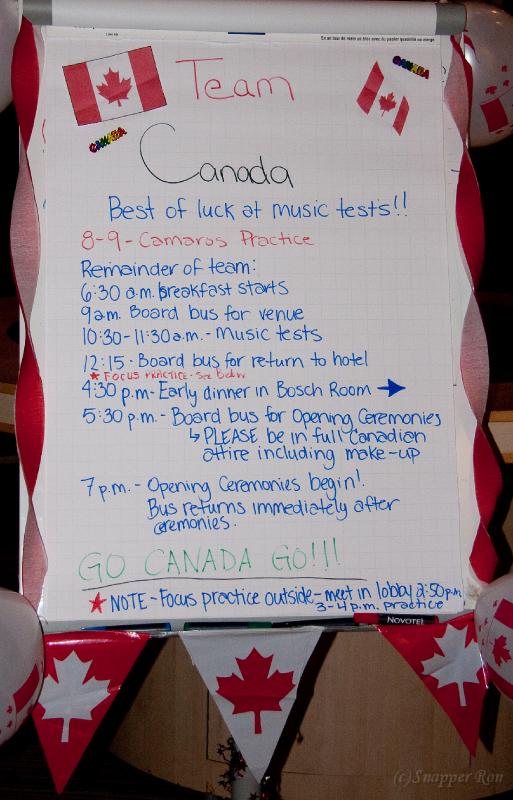 Team
CANADA
CANADA
Canada
Best of luck at music tests!!
8-9 - Camaros Practice
Remainder of team:
6:30 a.m. breakfast starts
9am. Board bus for venue
10:30-11:30a.m. - Music tests
12:15 - Board bus for return to hotel
★ FOCUS PRACTICE - See Below
4:30 p.m- Early dinner in Bosch Room →
5:30 p.m. - Board bus for Opening Ceremonies
↳ PLEASE be in full Canadian
attire including make-up
7 p.m. - Opening Ceremonies begin!
Bus returns immediately after
ceremonies.
GO CANADA GO!!!
★ NOTE - Focus practice outside - meet in lobby 2:50p.m
3-4 p.m. practice
NOVOTEL
(c)Snapper Ron